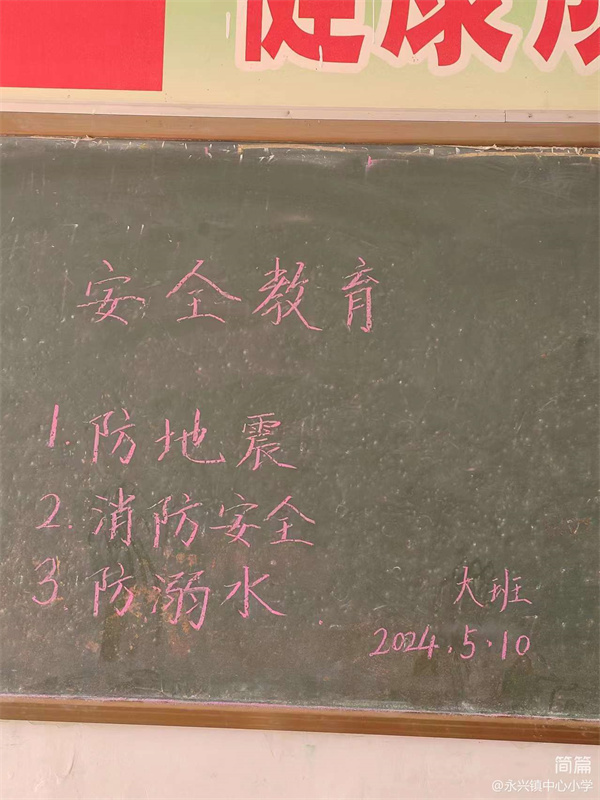 健康
安全教育
1.防地震
2.消防安全
3.防溺水
大班
2024.5.10
简篇
@永兴镇中心小学